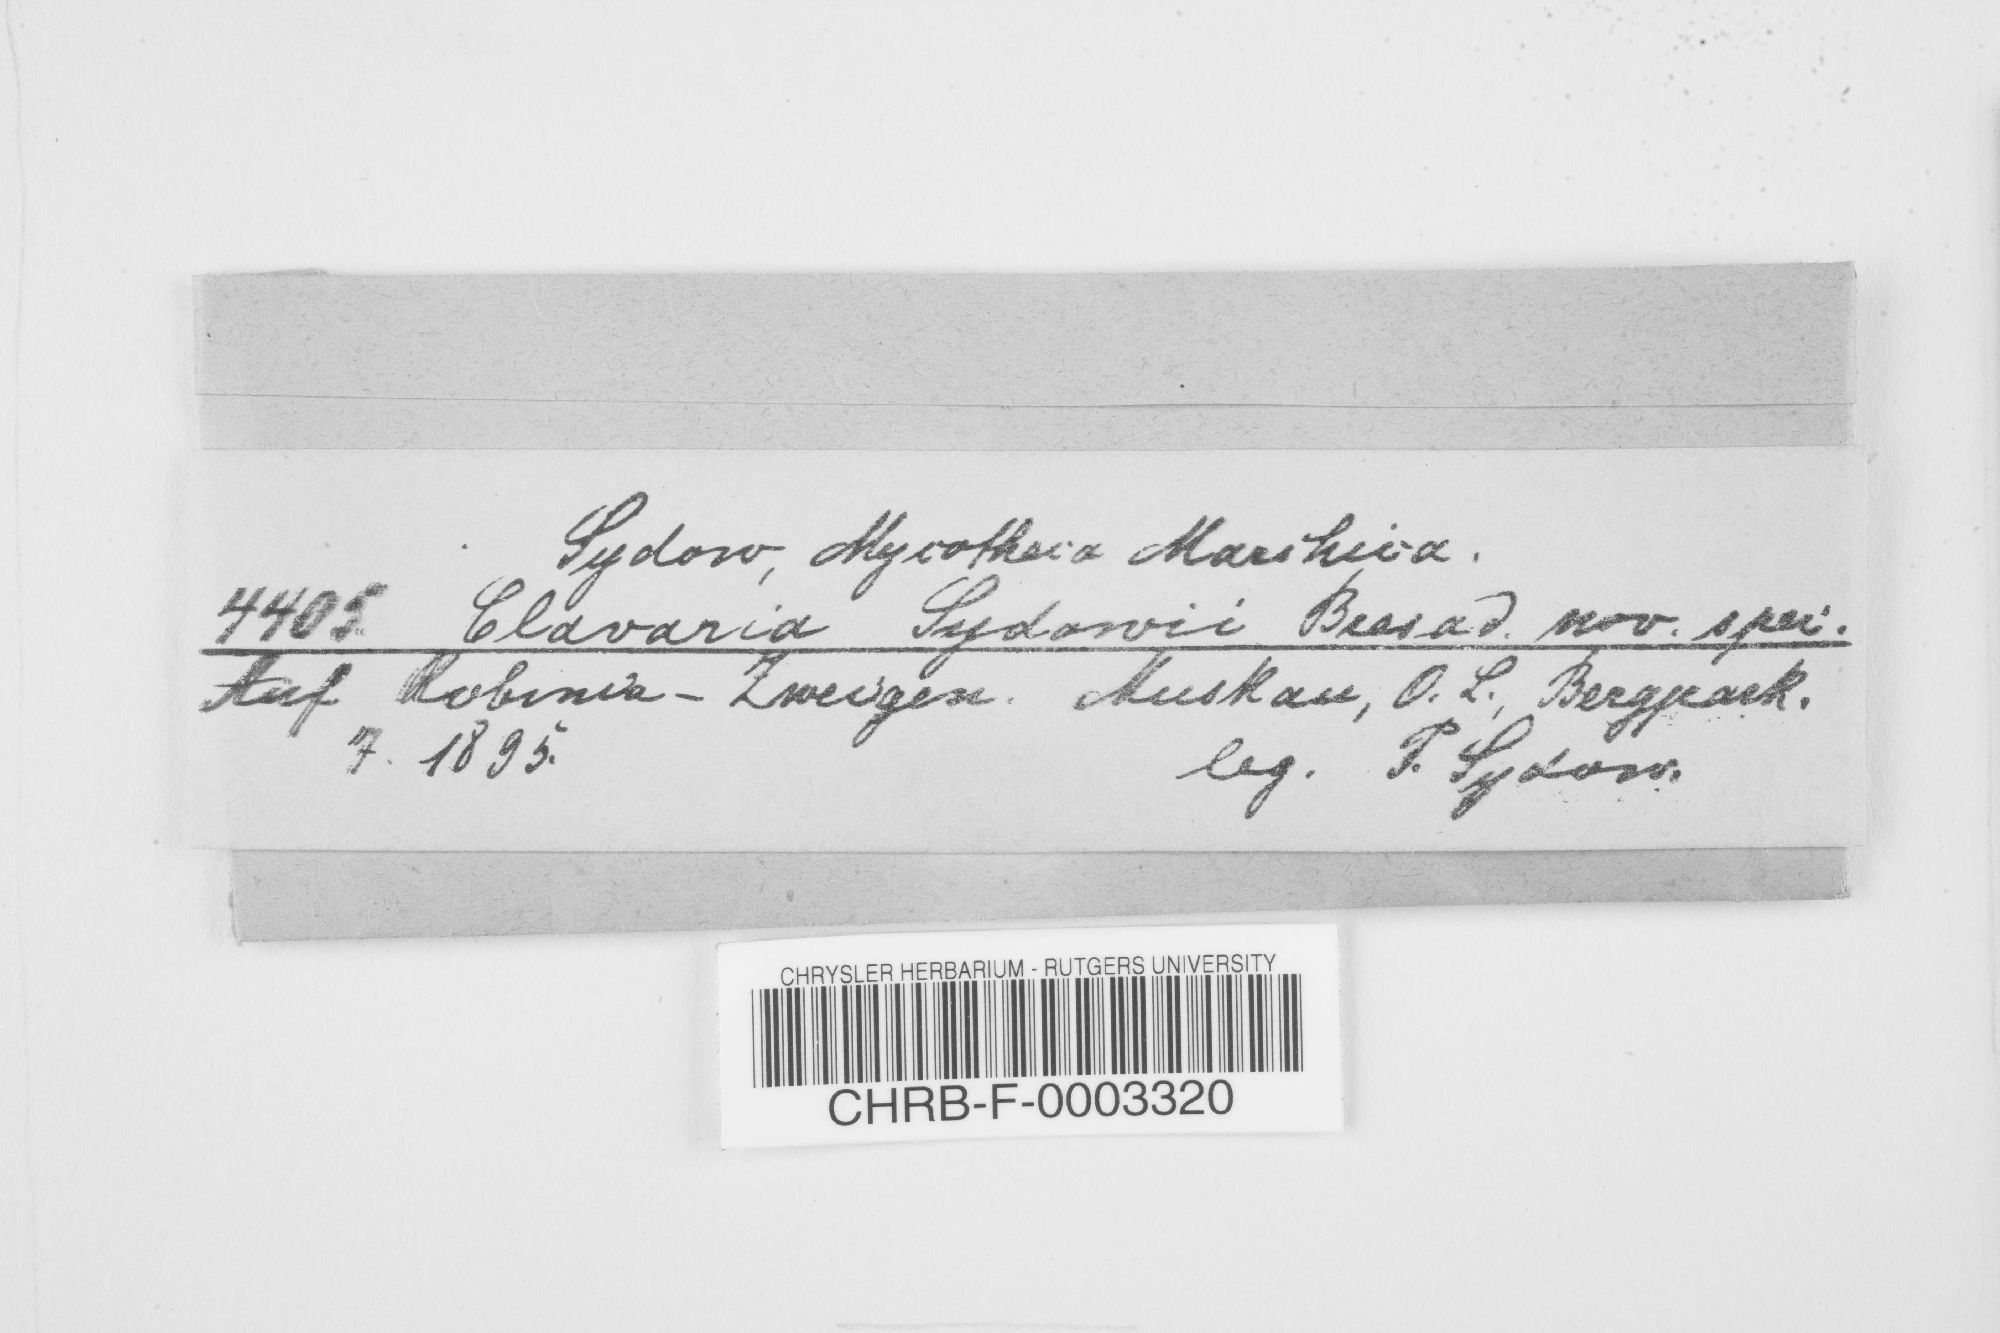 Sydow, Mycotheca Marchica.
4405. Clavaria Sydowii Bresad. nov. spec.
Auf Robinia-Zweigen. Muskau, O. L., Bergpark.
7. 1895. leg. P. Sydow.
CHRYSLER HERBARIUM - RUTGERS UNIVERSITY
CHRB-F-0003320